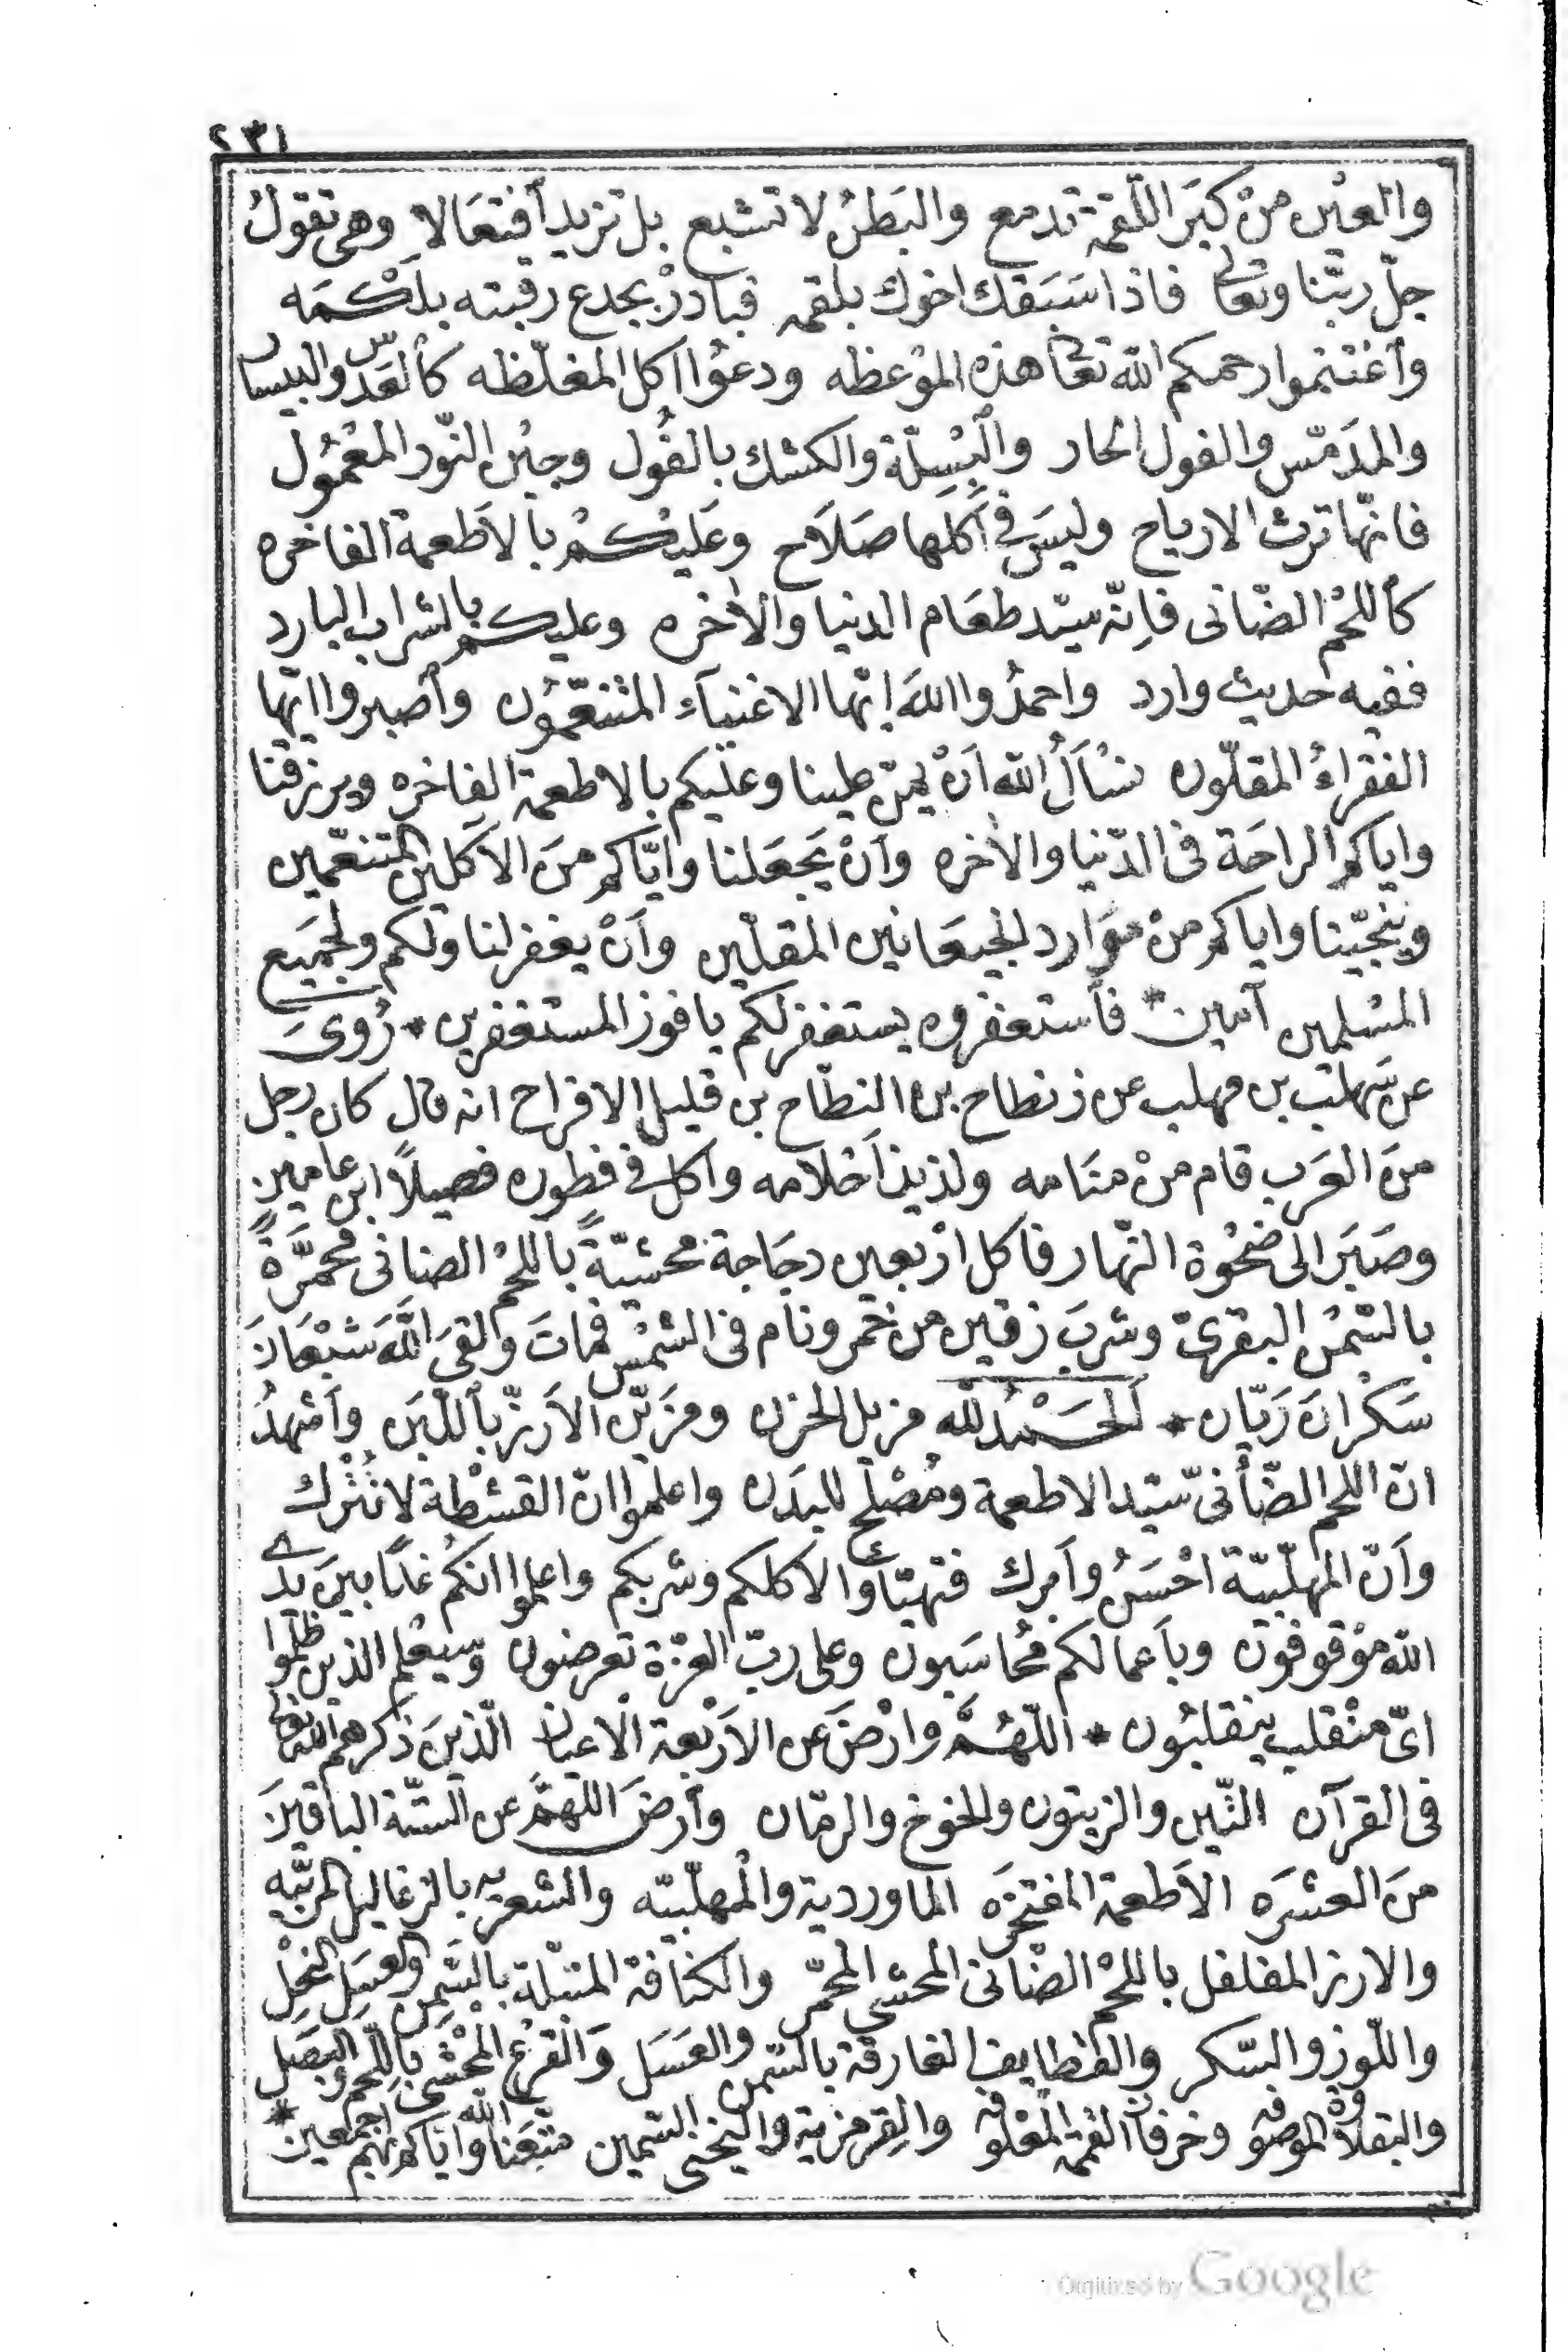 ٢٣١
والعين من كبَر اللّقمة تدمع والبَطنُ لا تشبع بل تزيد أفتعَالا وهى تقولُ
جلّ ربّنا وتعالى فاذا سَبَقك اخوك بلقمه فبادرْ بجدع رقبته بلَكْمَه
وأغتنموا رحمكم الله تعالى هذه الموْعظه ودعوُا اكل المغلّظه كألعَدّس والبيسار
والمدَمّس والفول الحار والْبِسِلّة والكشك بالفُول وجبْن النّور المعْمُول
فانّها ترث الارياح وليسَ فى أكلها صَلاَح وعَليْكمْ بألاَطعمة الفاخره
كأللحْم الضّانى فإنّه سيّد طعَام الدنيا والأخره وعليكم بالشراب البارد
ففيه حديث وارد واحمدُوا اللهَ إيّها الاغنيآء المتْنعّمُون وأصبروا ايّها
الفقراءُ المقلّون نسْأَلُ الله اَنْ يمنّ علينا وعليكم بالاطعمة الفاخره ويرزقنا
واياكم الراحَة فى الدّنيا والأخره وَانْ يَجعَلنا وايّاكم منَ الاكلين المتنعّمين
وينجّينا واياكم منْ موَارد الجيعَانين المقلّين وأَنْ يغفرلنا ولكم ولجميَع
المسْلمين آمين * فأستغفروه يستغفرلكم يا فوز المستغفرين * رُوىَ
عن سَهلب بن مهلب عن زنطاح بن النطّاح بن قليل الافراح انه قال كان رجل
منَ العَرَب قام منْ منَامه ولذيذ اَخلامه واكل فى فطوره فصيلاً ابن عامين
وصَبَرَ الى ضحْوُة النّهار فاكل ارْبعين دجَاجة محْشيّةً باللحْم الضانى محمَّرَةً
بالسّمْن البقرىّ وشربَ زقين من خمر ونام فى الشمْس فماتَ والقىَ اللهَ شبْعَانَ
سَكرانَ رَيّان * اَلحَمْدُ لله مزيل الحزن ومزَيّن الاَرزّ بأللّبَن وأشهدُ
انّ اللحم الضّأنى سّيّد الاطعمة ومُصْلح للبدَن واعلموا انّ القشْطة لا تُتْرك
وأَنّ المهلّبيّة احْسَنُ وأبرك فتهيّأوا لاكلكم وشربكم واعلموا انكم غدًا بينَ يدى
الله موْقوفون وباَعمالكم محُاسَبون وعلى ربّ العزّة تعرضون وسيعْلم الذين ظلموا
اىّ منْقلب ينقلبُون * اللّهُمَّ وارْضَ عن الاَرْبعة الاَعيان الّذينَ ذكرهم الله تعالى
فى القرآن التّين والزيتون والخوخ والرمّان وأرضَ اللهمَّ عن الستّة الباقينَ
منَ العشرَه الاَطعمة المفتخرَه الماوردية والمهلّبيّه والشعريه بالزغاليل المربّيه
والارز المفلفل باللحْم الضّانى المحشى المحمّر والكنافة المتبّلة بالسّمن والعسَل النحْل
واللّوز والسّكر والقطايف الغارقة بالسّمن والعَسَل وَالقرْع المحْشى باللّحم والبَصَل
والبقلاوة الموصوفه وخرفان الغمّة المعْلوفه والقرمزية واليخنى السّمين متّعَنا الله واياكم بهم اجمعين *